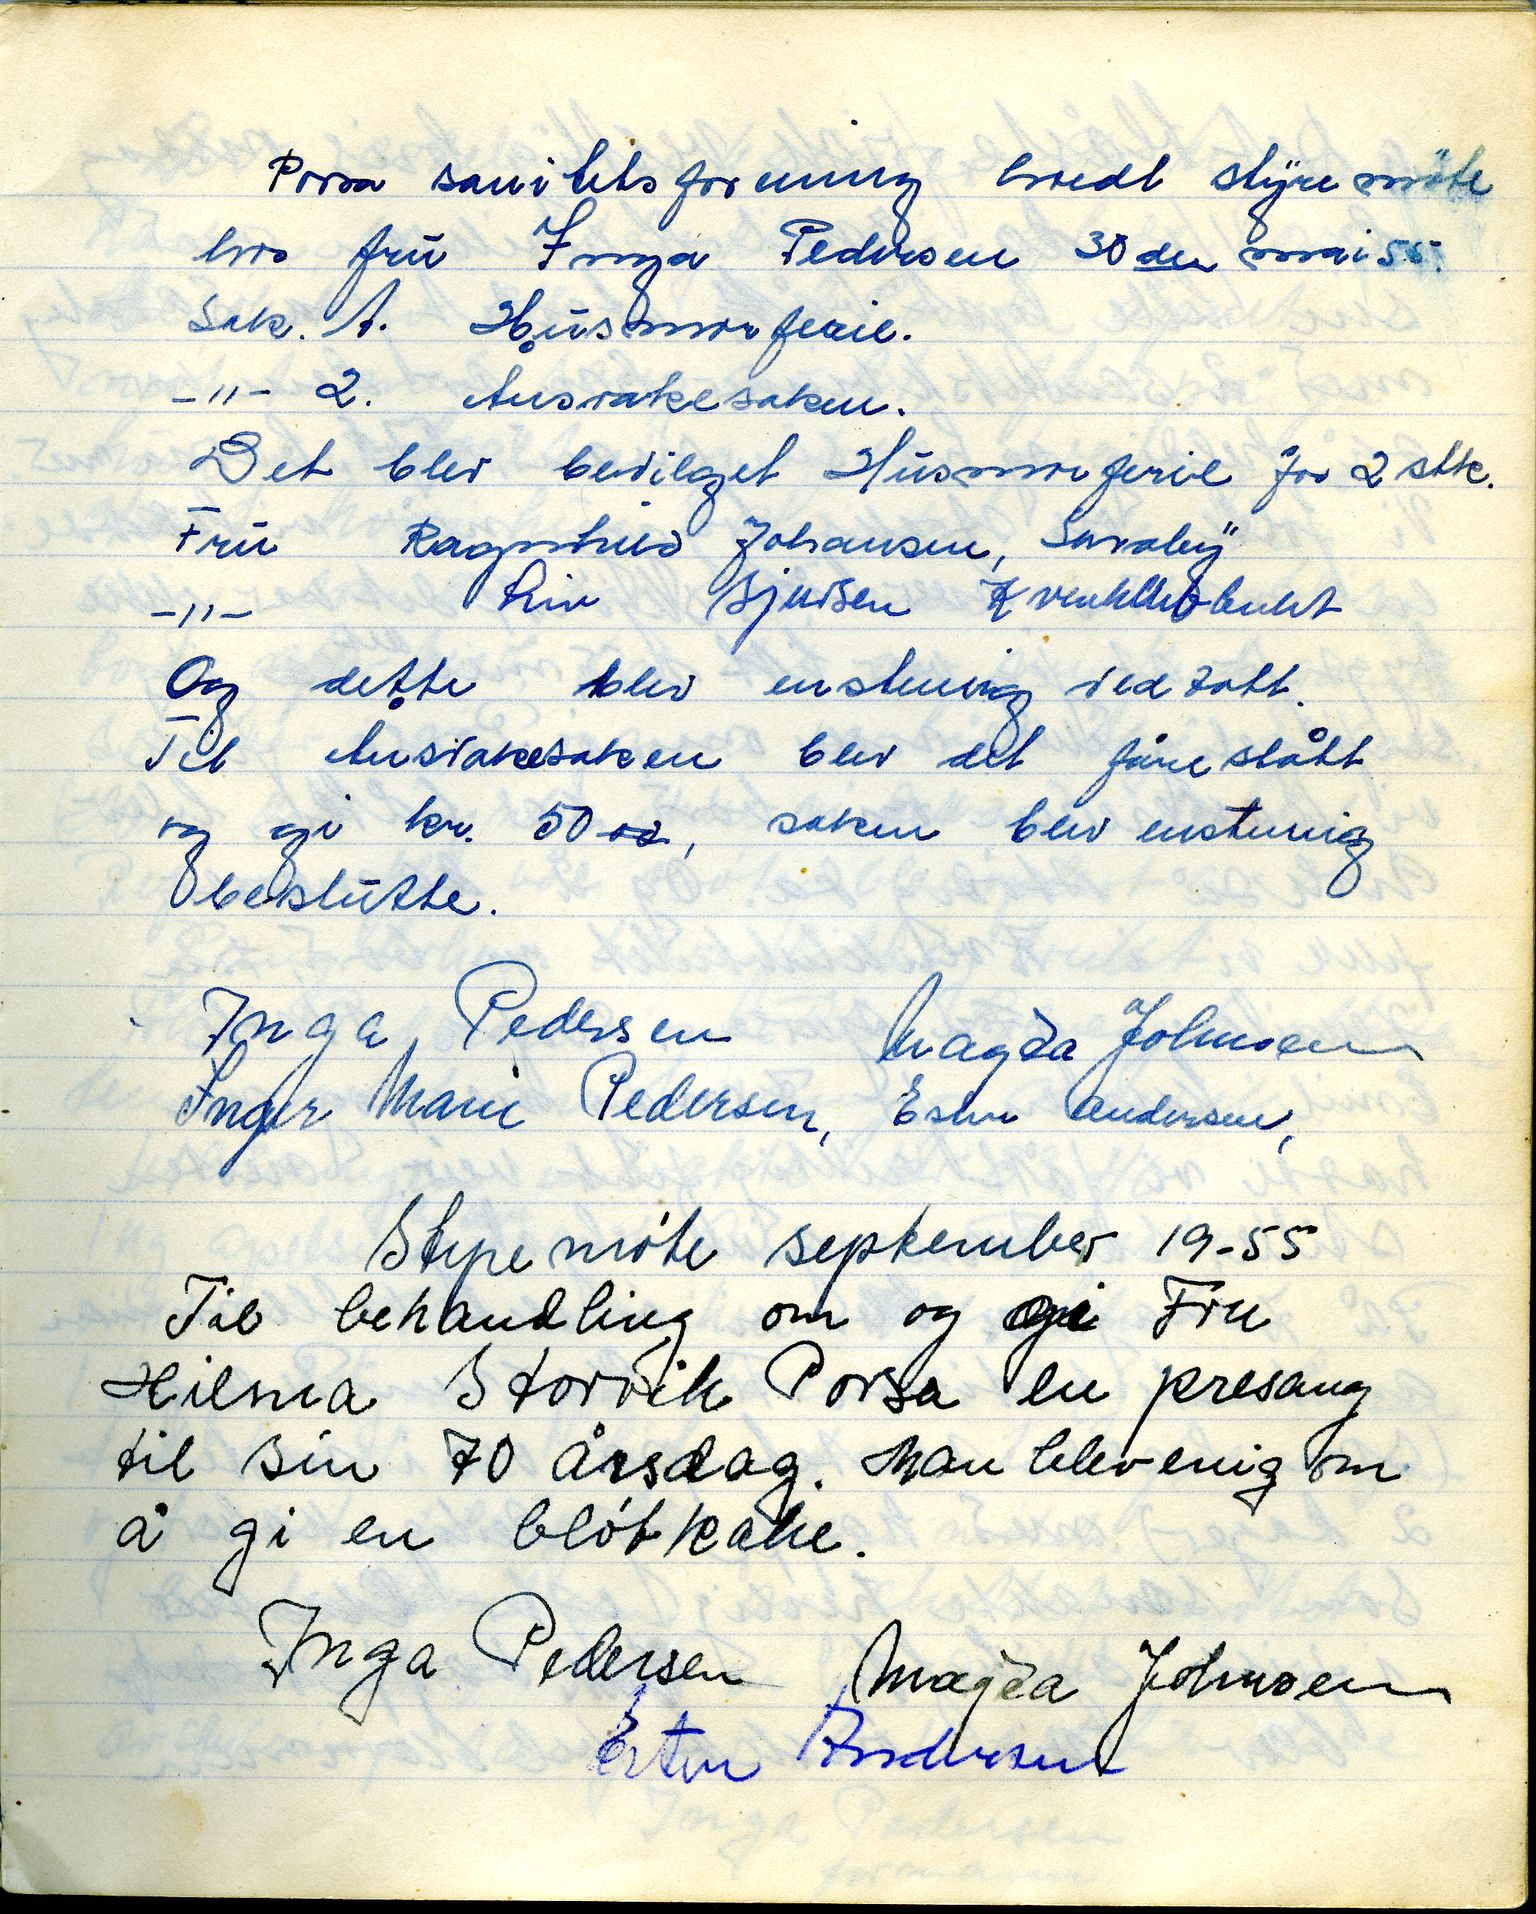 Porsa sanitetsforening hvedt styremöte
hos frü Inga Pedersen 30 den mai 55.
Sak. 1. Hüsmorferie.
-"- 2. Ausvakesaken.
Det blev bevilget Hüsmorferie for 2 stk.
Frü Ragnhild Johansen, Saraby
-"- Liv
Og dette blev enstemig vedtatt.
Til Ausvakesaken blev det fåreslått
og gi kr. 50 00, saken blev enstemig
beslütte.
Inga Pedersen Magda Johnsen
Inger Marie Pedersen, Ester Andersen,
Styremöte september 19-55
Til behandling om og gi Fru
Hilma Storvik Porsa en presang
til sin 70 årsdag. Man blev enig om
å gi en blótkake.
Inga Pedersen Magda Johnsen
Ester Andersen